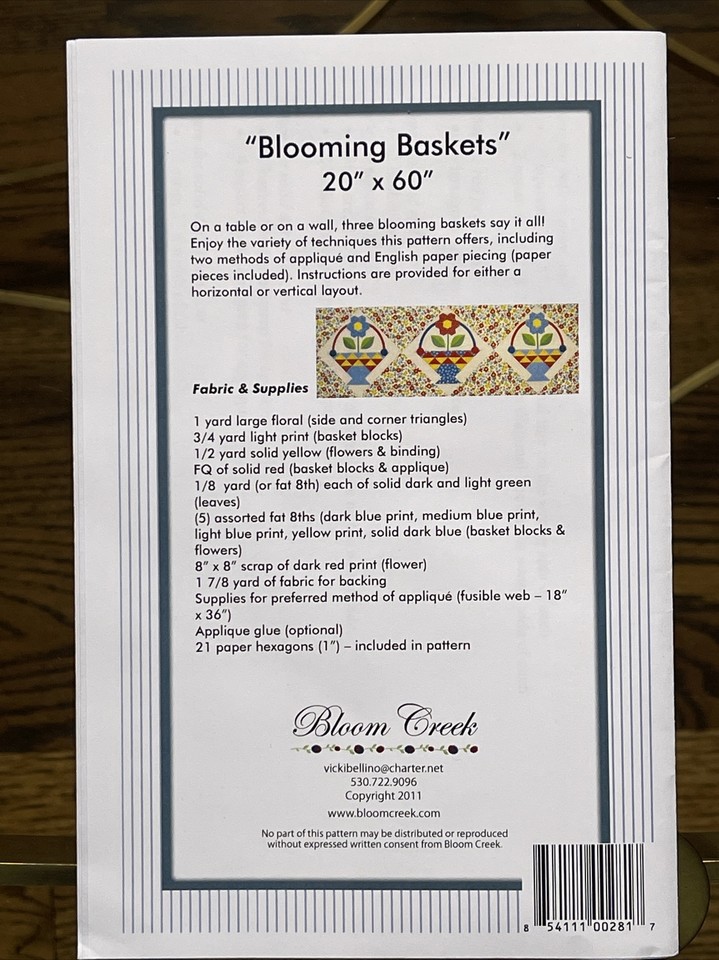 “Blooming Baskets”
20” x 60”
On a table or on a wall, three blooming baskets say it all!
Enjoy the variety of techniques this pattern offers, including
two methods of appliqué and English paper piecing (paper
pieces included). Instructions are provided for either a
horizontal or vertical layout.
Fabric & Supplies
1 yard large floral (side and corner triangles)
3/4 yard light print (basket blocks)
1/2 yard solid yellow (flowers & binding)
FQ of solid red (basket blocks & applique)
1/8 yard (or fat 8th) each of solid dark and light green
(leaves)
(5) assorted fat 8ths (dark blue print, medium blue print,
light blue print, yellow print, solid dark blue (basket blocks &
flowers)
8” x 8” scrap of dark red print (flower)
1 7/8 yard of fabric for backing
Supplies for preferred method of appliqué (fusible web – 18”
x 36”)
Applique glue (optional)
21 paper hexagons (1”) – included in pattern
Bloom Creek
vickibellino@charter.net
530.722.9096
Copyright 2011
www.bloomcreek.com
No part of this pattern may be distributed or reproduced
without expressed written consent from Bloom Creek.
8 54111 00281 7